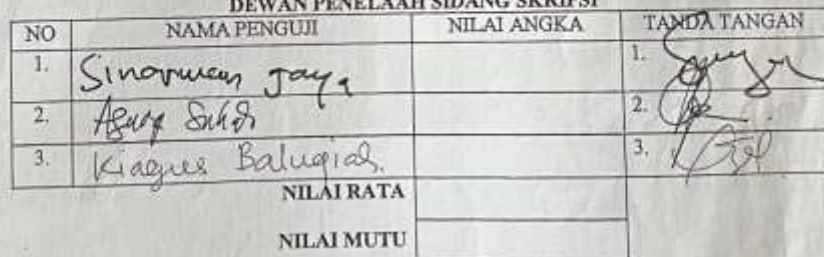 DEWAN PENELAAH SIDANG SKRIPSI
NO NAMA PENGUJI NILAI ANGKA TANDA TANGAN
1. Sinarman Jaya 1.
2. Agung 2.
3. Kiagus Balugiah 3.
NILAI RATA
NILAI MUTU